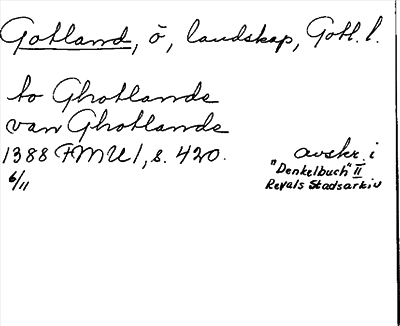 Gotland, ö, landskap, Gotl. l.
to Ghotlande
van Ghotlande
1388 FMU 1, s. 420.
6/11
avskr. i
"Denkelbuch" II
Revals Stadsarkiv